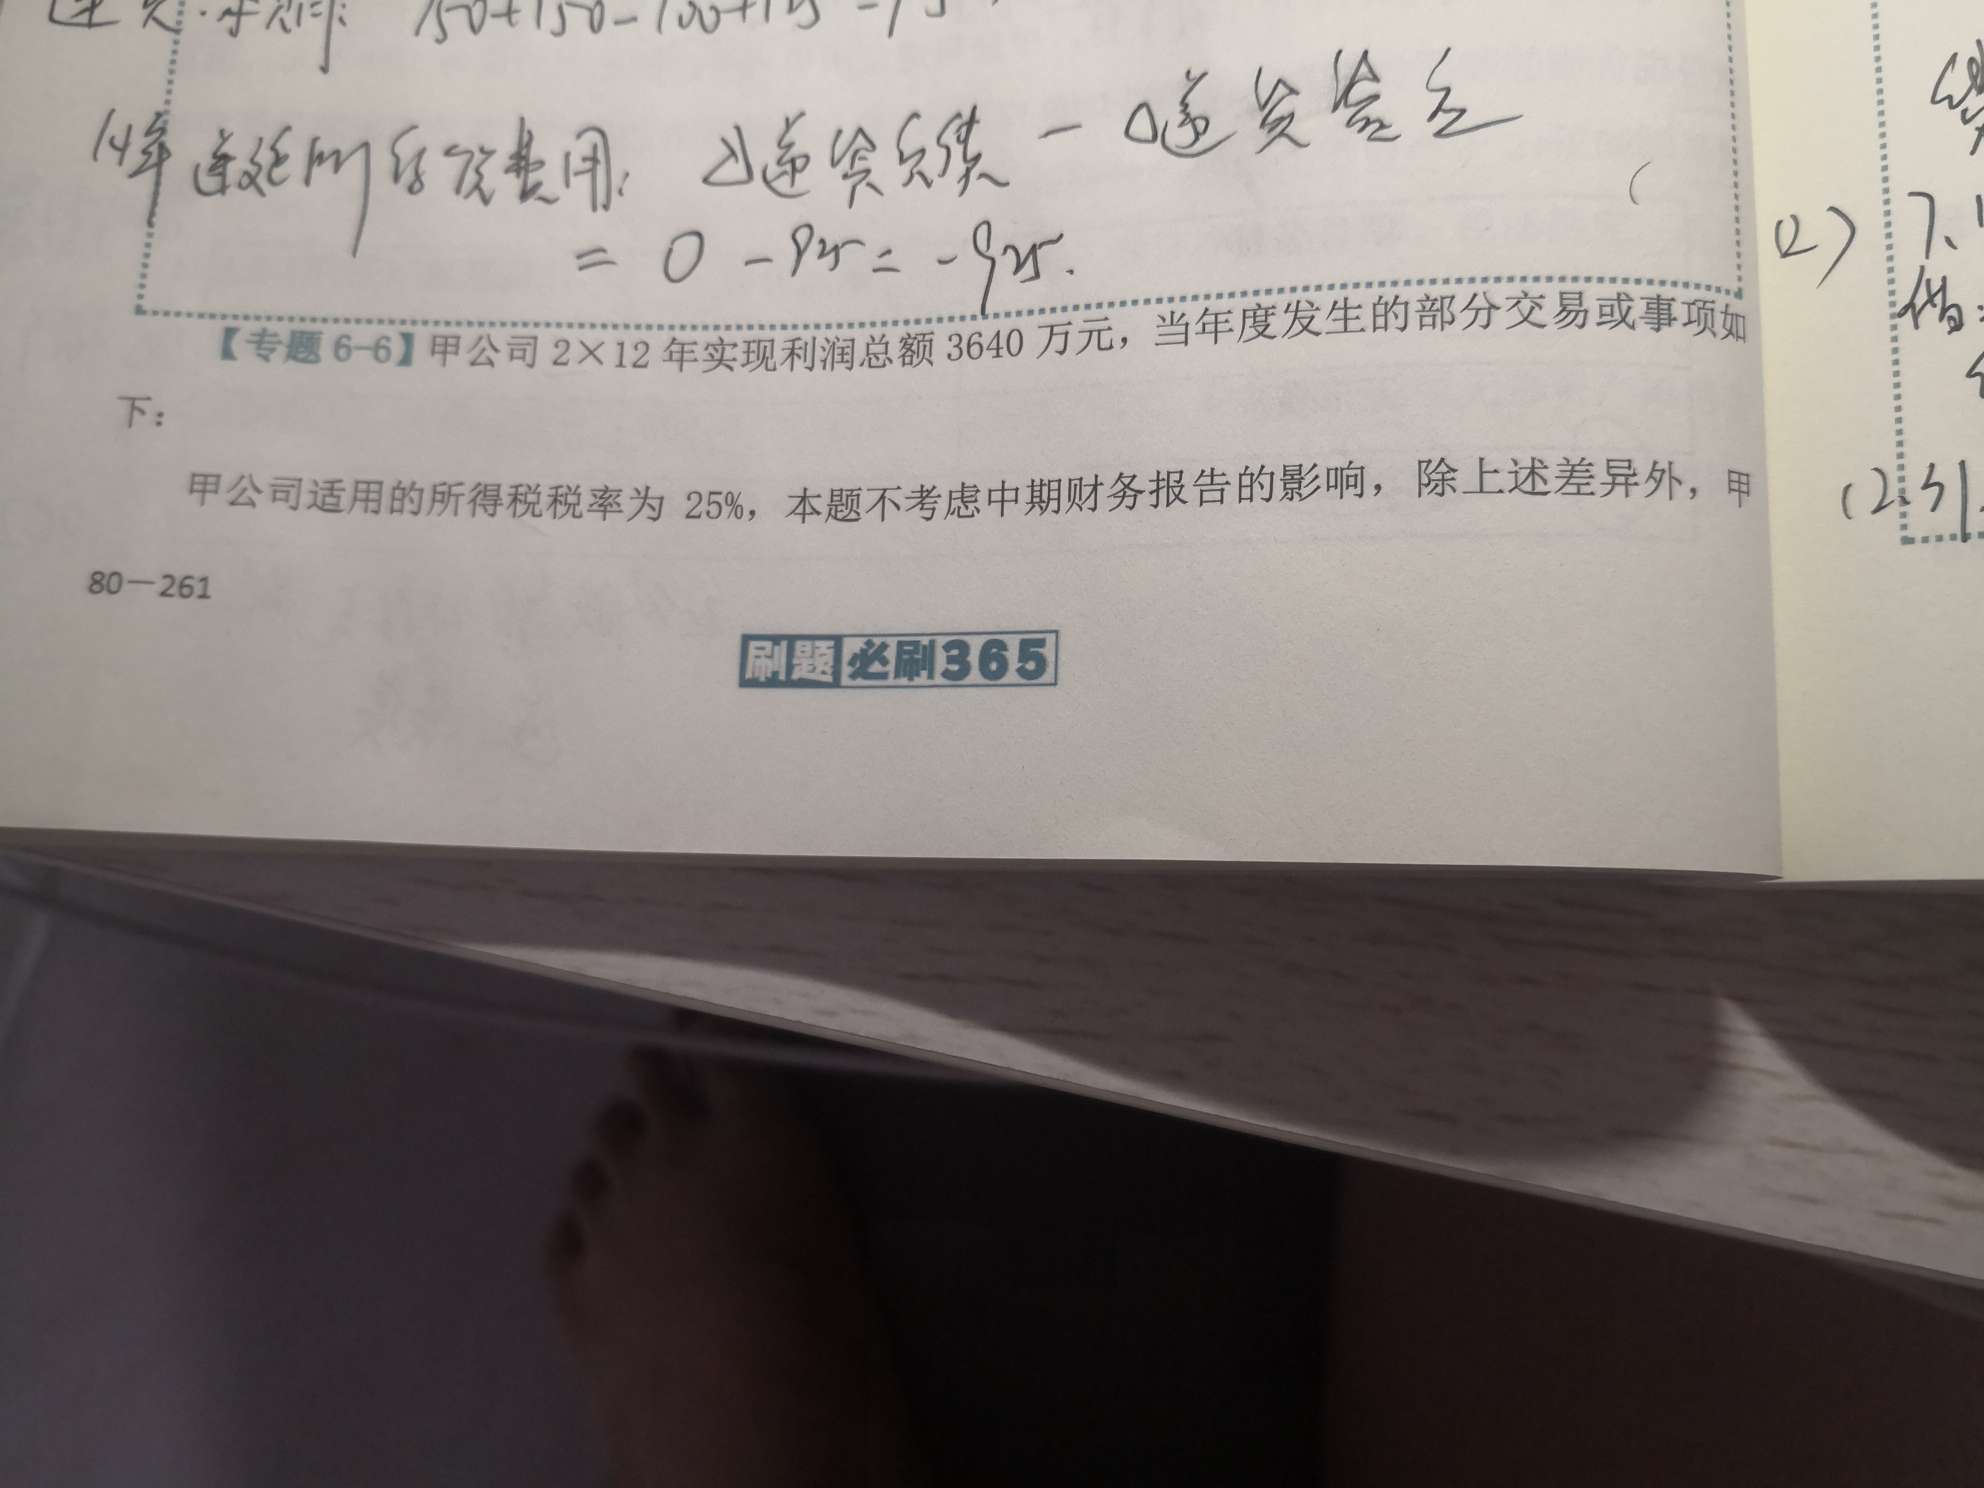 150+150-100+125
14年递延所得税费用: △递资负债 - △递资资产
= 0 - 95 = - 95.
(2)
【专题 6-6】甲公司 2×12 年实现利润总额 3640 万元，当年度发生的部分交易或事项如
下：
甲公司适用的所得税税率为 25%，本题不考虑中期财务报告的影响，除上述差异外，甲
80—261
刷题 必刷365